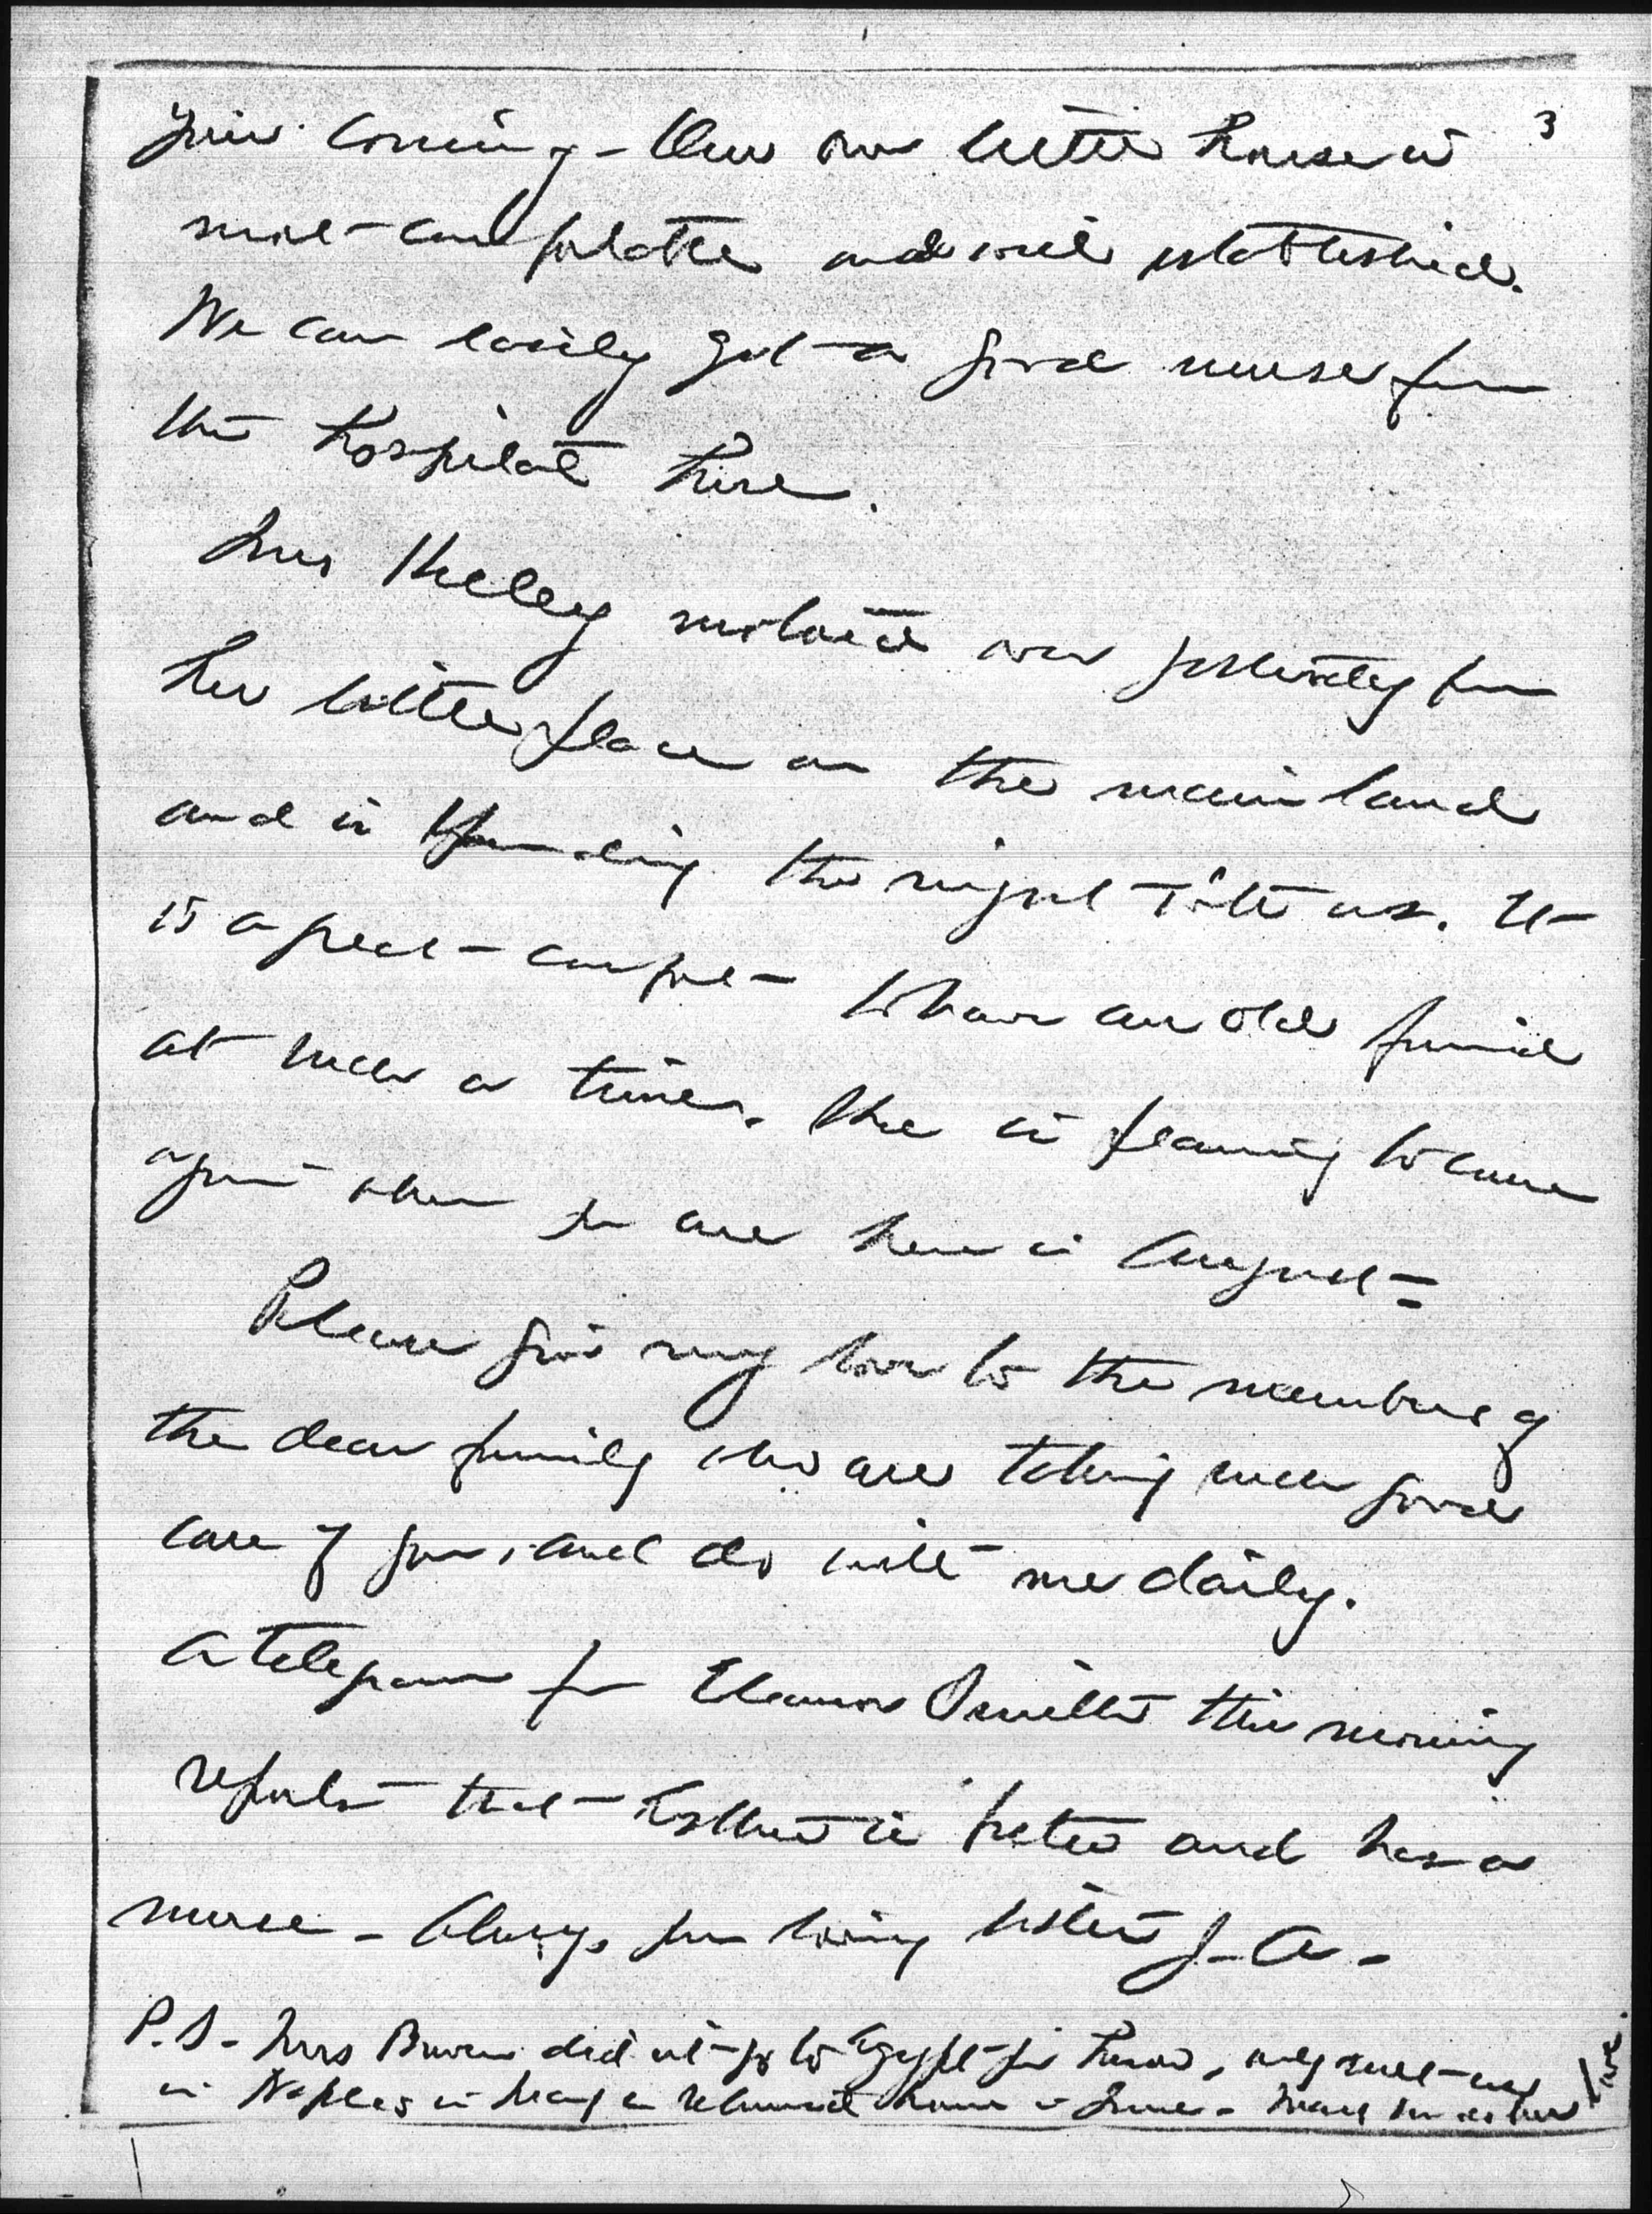 3
your coming – Our own little house is
most comfortable and well established.
We can easily get a good nurse from
the hospital here.
Mrs Kelley motored over yesterday from
her little place on the mainland
and is spending the night with us. It
is a great comfort to have an old friend
at such a time. She is planning to come
again when you are here in August –
Please give my love to the members of
the dear family who are taking such good
care of you, and do write me daily.
A telegram from Eleanor Smith this morning
reports that Esther is better and has a
nurse – Always your loving sister J. A. –
P.S – Mrs Bowen did not go to Egypt for Louise, only met
in Naples in May & returned home in June –